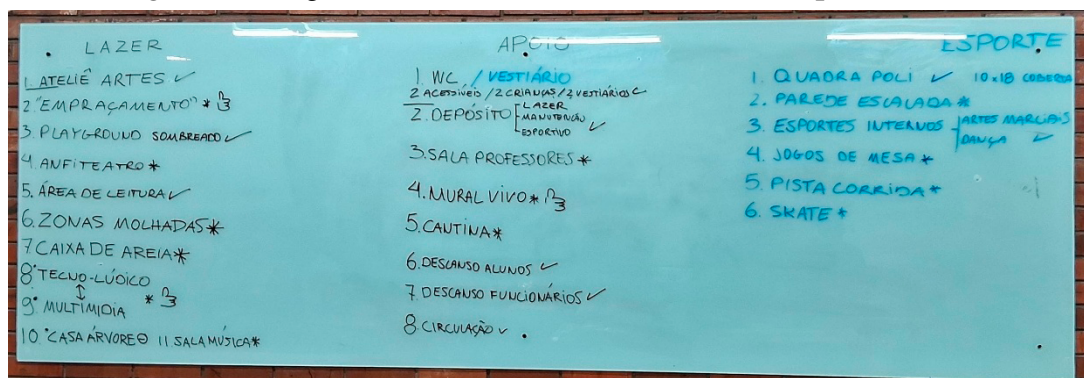 LAZER
1. ATELIÊ ARTES ✓
2. "EMPRAÇAMENTO" *
3. PLAYGROUND SOMBREADO ✓
4. ANFITEATRO *
5. ÁREA DE LEITURA ✓
6. ZONAS MOLHADAS *
7. CAIXA DE AREIA *
8. TECNO-LÚDICO
↕ *
9. MULTIMIDIA
10. CASA ÁRVORE 11. SALA MÚSICA *
APOIO
1. WC / VESTIÁRIO
2 ACESSÍVEIS / 2 CRIANÇAS / 2 VESTIÁRIOS ✓
2. DEPÓSITO LAZER
MANUTENÇÃO
ESPORTIVO ✓
3. SALA PROFESSORES *
4. MURAL VIVO *
5. CANTINA *
6. DESCANSO ALUNOS ✓
7. DESCANSO FUNCIONÁRIOS ✓
8. CIRCULAÇÃO ✓
ESPORTE
1. QUADRA POLI ✓ 10x18 COBERTA
2. PAREDE ESCALADA *
3. ESPORTES INTERNOS ARTES MARCIAIS
DANÇA ✓
4. JOGOS DE MESA *
5. PISTA CORRIDA *
6. SKATE *